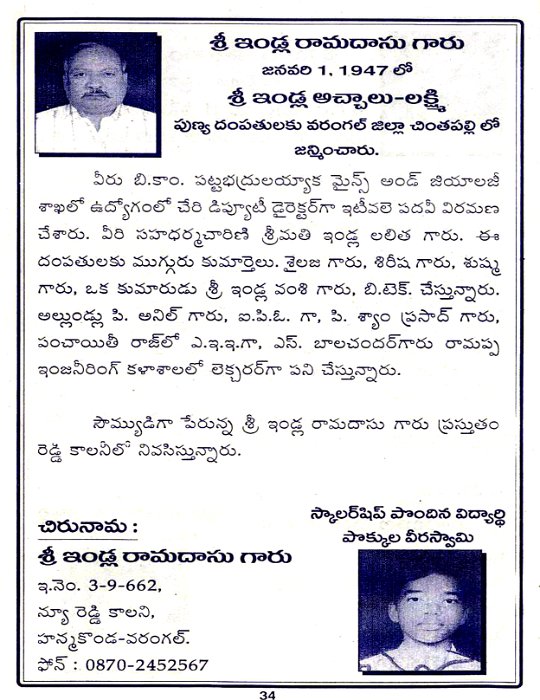 శ్రీ ఇండ్ల రామదాసు గారు
జనవరి 1, 1947 లో
శ్రీ ఇండ్ల అచ్చాలు-లక్ష్మి
పుణ్య దంపతులకు వరంగల్ జిల్లా చింతపల్లి లో
జన్మించారు.
వీరు బి.కాం. పట్టభద్రులయ్యాక మైన్స్ అండ్ జియాలజీ
శాఖలో ఉద్యోగంలో చేరి డిప్యూటీ డైరెక్టర్‌గా ఇటీవలె పదవీ విరమణ
చేశారు. వీరి సహధర్మచారిణి శ్రీమతి ఇండ్ల లలిత గారు. ఈ
దంపతులకు ముగ్గురు కుమార్తెలు. శైలజ గారు, శిరీష గారు, శుష్మ
గారు, ఒక కుమారుడు శ్రీ ఇండ్ల వంశి గారు, బి.టెక్. చేస్తున్నారు.
అల్లుండ్లు పి. అనిల్ గారు, ఐ.పి.ఓ. గా, పి. శ్యాం ప్రసాద్ గారు,
పంచాయితీ రాజ్‌లో ఎ.ఇ.ఇ.గా, ఎస్. బాలచందర్‌గారు రామప్ప
ఇంజనీరింగ్ కళాశాలలో లెక్చరర్‌గా పని చేస్తున్నారు.
సౌమ్యుడిగా పేరున్న శ్రీ ఇండ్ల రామదాసు గారు ప్రస్తుతం
రెడ్డి కాలనీలో నివసిస్తున్నారు.
చిరునామ :
శ్రీ ఇండ్ల రామదాసు గారు
ఇ.నెం. 3-9-662,
న్యూ రెడ్డి కాలని,
హన్మకొండ-వరంగల్.
ఫోన్ : 0870-2452567
స్కాలర్‌షిప్ పొందిన విద్యార్థి
పొక్కుల వీరస్వామి
34